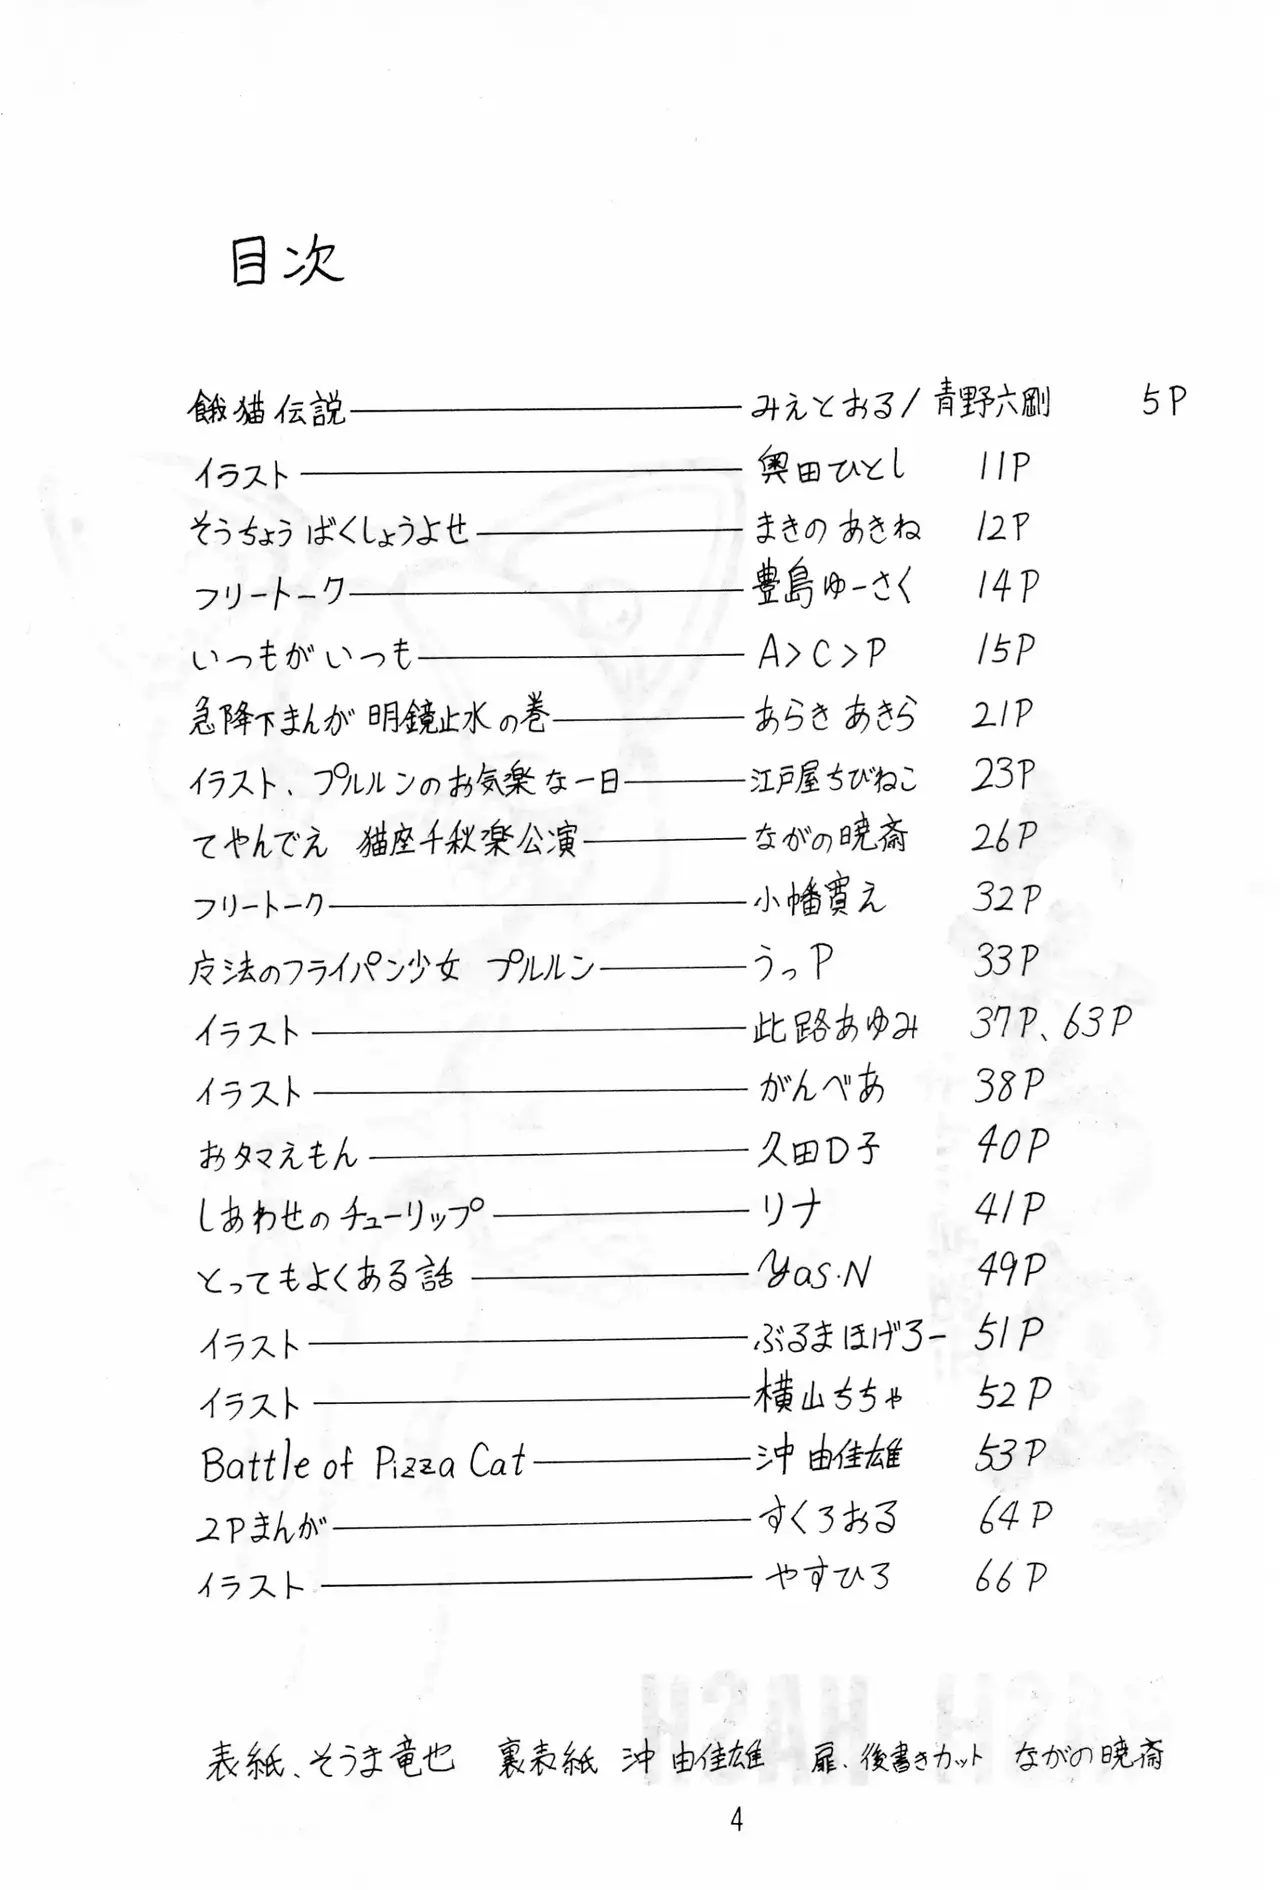 目次
餓猫伝説 みえとおる/青野六剛 5P
イラスト 奥田ひとし 11P
そうちょう ばくしょうよせ まきの あきね 12P
フリートーク 豊島ゆーさく 14P
いつもがいつも A>C>P 15P
急降下まんが 明鏡止水の巻 あらき あきら 21P
イラスト、プルルンのお気楽な一日 江戸屋ちびねこ 23P
てやんでえ 猫座千秋楽公演 ながの暁斎 26P
フリートーク 小幡寛え 32P
魔法のフライパン少女 プルルン うっP 33P
イラスト 此路あゆみ 37P、63P
イラスト がんべあ 38P
おタマえもん 久田D子 40P
しあわせのチューリップ リナ 41P
とってもよくある話 Yas.N 49P
イラスト ぶるまほげろー 51P
イラスト 横山ちちゃ 52P
Battle of Pizza Cat 沖由佳雄 53P
2Pまんが すくろおる 64P
イラスト やすひろ 66P
表紙、そうま竜也 裏表紙 沖由佳雄 扉、後書きカット ながの暁斎
4